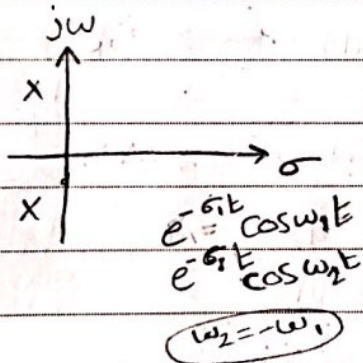 jω
X
σ
X
e^-σ₁t cosω₁t
e^-σ₂t cosω₂t
ω₂=-ω₁